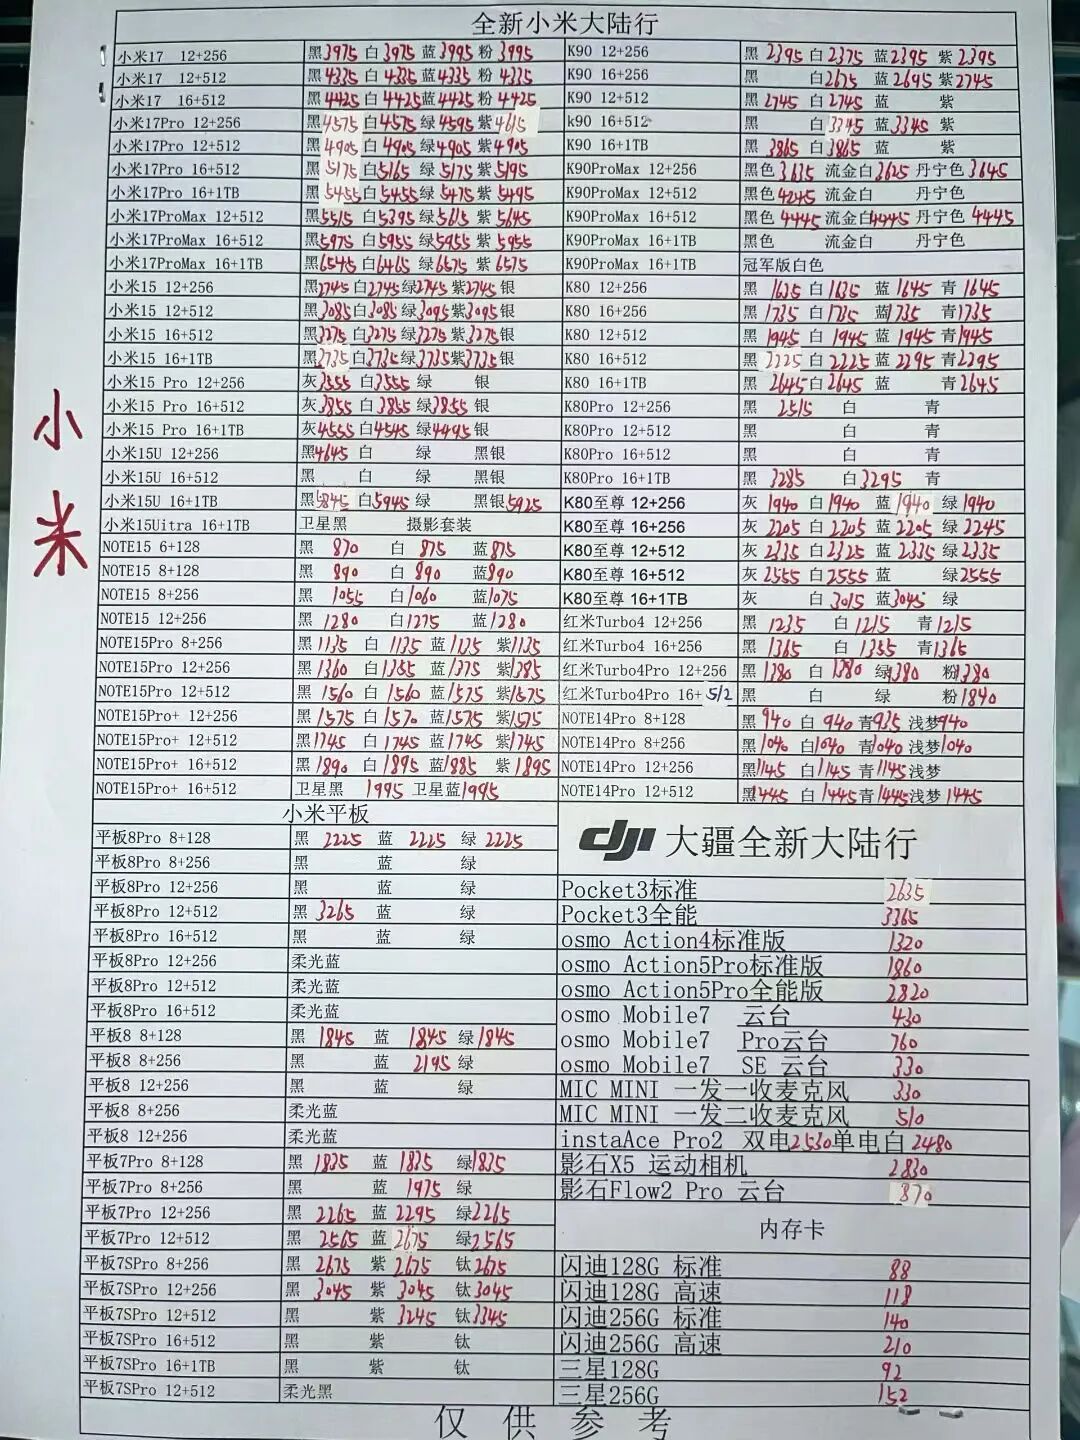 全新小米大陆行
小米17 12+256 黑3975 白3975 蓝3995 粉3995
小米17 12+512 黑4335 白4335 蓝4335 粉4335
小米17 16+512 黑4425 白4425 蓝4425 粉4425
小米17Pro 12+256 黑4575 白4575 绿4595 紫4615
小米17Pro 12+512 黑4905 白4905 绿4905 紫4905
小米17Pro 16+512 黑5175 白5165 绿5175 紫5195
小米17Pro 16+1TB 黑5455 白5455 绿5475 紫5495
小米17ProMax 12+512 黑5515 白5395 绿5615 紫5645
小米17ProMax 16+512 黑5975 白5955 绿5955 紫5955
小米17ProMax 16+1TB 黑6545 白6465 绿6575 紫6575
小米15 12+256 黑2745 白2745 绿2745 紫2745 银
小米15 12+512 黑3085 白3085 绿3095 紫3095 银
小米15 16+512 黑3275 白3275 绿3275 紫3275 银
小米15 16+1TB 黑3735 白3735 绿3735 紫3735 银
小米15 Pro 12+256 灰3555 白3555 绿 银
小米15 Pro 16+512 灰3855 白3855 绿3855 银
小米15 Pro 16+1TB 灰4555 白4545 绿4495 银
小米15U 12+256 黑4645 白 绿 黑银
小米15U 16+512 黑 白 绿 黑银
小米15U 16+1TB 黑5845 白5945 绿 黑银5925
小米15Uitra 16+1TB 卫星黑 摄影套装
NOTE15 6+128 黑 870 白 875 蓝875
NOTE15 8+128 黑 890 白 890 蓝890
NOTE15 8+256 黑 1055 白1060 蓝1075
NOTE15 12+256 黑 1280 白1275 蓝1280
NOTE15Pro 8+256 黑1135 白 1135 蓝1135 紫1135
NOTE15Pro 12+256 黑1360 白1355 蓝1375 紫1385
NOTE15Pro 12+512 黑1560 白1560 蓝1575 紫1575
NOTE15Pro+ 12+256 黑1575 白1570 蓝1575 紫1575
NOTE15Pro+ 12+512 黑1745 白1745 蓝1745 紫1745
NOTE15Pro+ 16+512 黑1890 白1895 蓝1885 紫1895
NOTE15Pro+ 16+512 卫星黑 1995 卫星蓝1995
小米平板
平板8Pro 8+128 黑 2225 蓝 2225 绿 2225
平板8Pro 8+256 黑 蓝 绿
平板8Pro 12+256 黑 蓝 绿
平板8Pro 12+512 黑 3265 蓝 绿
平板8Pro 16+512 黑 蓝 绿
平板8Pro 12+256 柔光蓝
平板8Pro 12+512 柔光蓝
平板8Pro 16+512 柔光蓝
平板8 8+128 黑 1845 蓝 1845 绿1845
平板8 8+256 黑 蓝 2195 绿
平板8 12+256 黑 蓝 绿
平板8 8+256 柔光蓝
平板8 12+256 柔光蓝
平板7Pro 8+128 黑 1835 蓝 1835 绿1835
平板7Pro 8+256 黑 蓝 1975 绿
平板7Pro 12+256 黑 2265 蓝 2295 绿2265
平板7Pro 12+512 黑 2565 蓝 2675 绿2565
平板7SPro 8+256 黑 2675 紫 2675 钛2675
平板7SPro 12+256 黑 3045 紫 3045 钛3045
平板7SPro 12+512 黑 紫 3245 钛3345
平板7SPro 16+512 黑 紫 钛
平板7SPro 16+1TB 黑 紫 钛
平板7SPro 12+512 柔光黑
K90 12+256 黑 2395 白 2375 蓝2395 紫2395
K90 16+256 黑 白2675 蓝2695 紫2745
K90 12+512 黑2745 白2745 蓝 紫
k90 16+512 黑 白3345 蓝3345 紫
K90 16+1TB 黑3865 白3865 蓝 紫
K90ProMax 12+256 黑色3635 流金白3625 丹宁色3645
K90ProMax 12+512 黑色4245 流金白 丹宁色
K90ProMax 16+512 黑色4445 流金白4445 丹宁色4445
K90ProMax 16+1TB 黑色 流金白 丹宁色
K90ProMax 16+1TB 冠军版白色
K80 12+256 黑 1635 白1635 蓝1645 青1645
K80 16+256 黑 1735 白1735 蓝1735 青1735
K80 12+512 黑 1945 白1945 蓝1945 青1945
K80 16+512 黑 2225 白2225 蓝2295 青2295
K80 16+1TB 黑 2645 白2645 蓝 青2645
K80Pro 12+256 黑 2515 白 青
K80Pro 12+512 黑 白 青
K80Pro 16+512 黑 白 青
K80Pro 16+1TB 黑 3285 白3295 青
K80至尊 12+256 灰 1940 白1940 蓝1940 绿 1940
K80至尊 16+256 灰 2205 白2205 蓝2205 绿 2245
K80至尊 12+512 灰 2335 白2325 蓝 2335 绿 2335
K80至尊 16+512 灰 2555 白2555 蓝 绿2555
K80至尊 16+1TB 灰 白3015 蓝3045 绿
红米Turbo4 12+256 黑 1235 白1215 青1215
红米Turbo4 16+256 黑 1365 白 1355 青1365
红米Turbo4Pro 12+256 黑1380 白 1380 绿1380 粉1380
红米Turbo4Pro 16+512 黑 白 绿 粉1840
NOTE14Pro 8+128 黑940 白 940 青935 浅梦940
NOTE14Pro 8+256 黑1040 白1040 青1040 浅梦1040
NOTE14Pro 12+256 黑1145 白1145 青1145 浅梦
NOTE14Pro 12+512 黑1445 白1445 青1445 浅梦1445
dji 大疆全新大陆行
Pocket3标准 2635
Pocket3全能 3365
osmo Action4标准版 1320
osmo Action5Pro标准版 1860
osmo Action5Pro全能版 2820
osmo Mobile7 云台 430
osmo Mobile7 Pro云台 760
osmo Mobile7 SE 云台 330
MIC MINI 一发一收麦克风 330
MIC MINI 一发二收麦克风 510
instaAce Pro2 双电2530单电白2480
影石X5 运动相机 2830
影石Flow2 Pro 云台 870
内存卡
闪迪128G 标准 88
闪迪128G 高速 118
闪迪256G 标准 140
闪迪256G 高速 210
三星128G 92
三星256G 152
小米
仅供参考